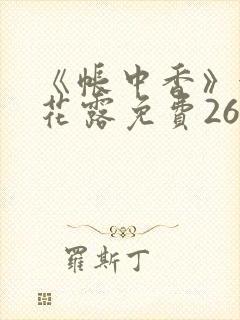 《帳中香》
花露免費26
羅斯丁